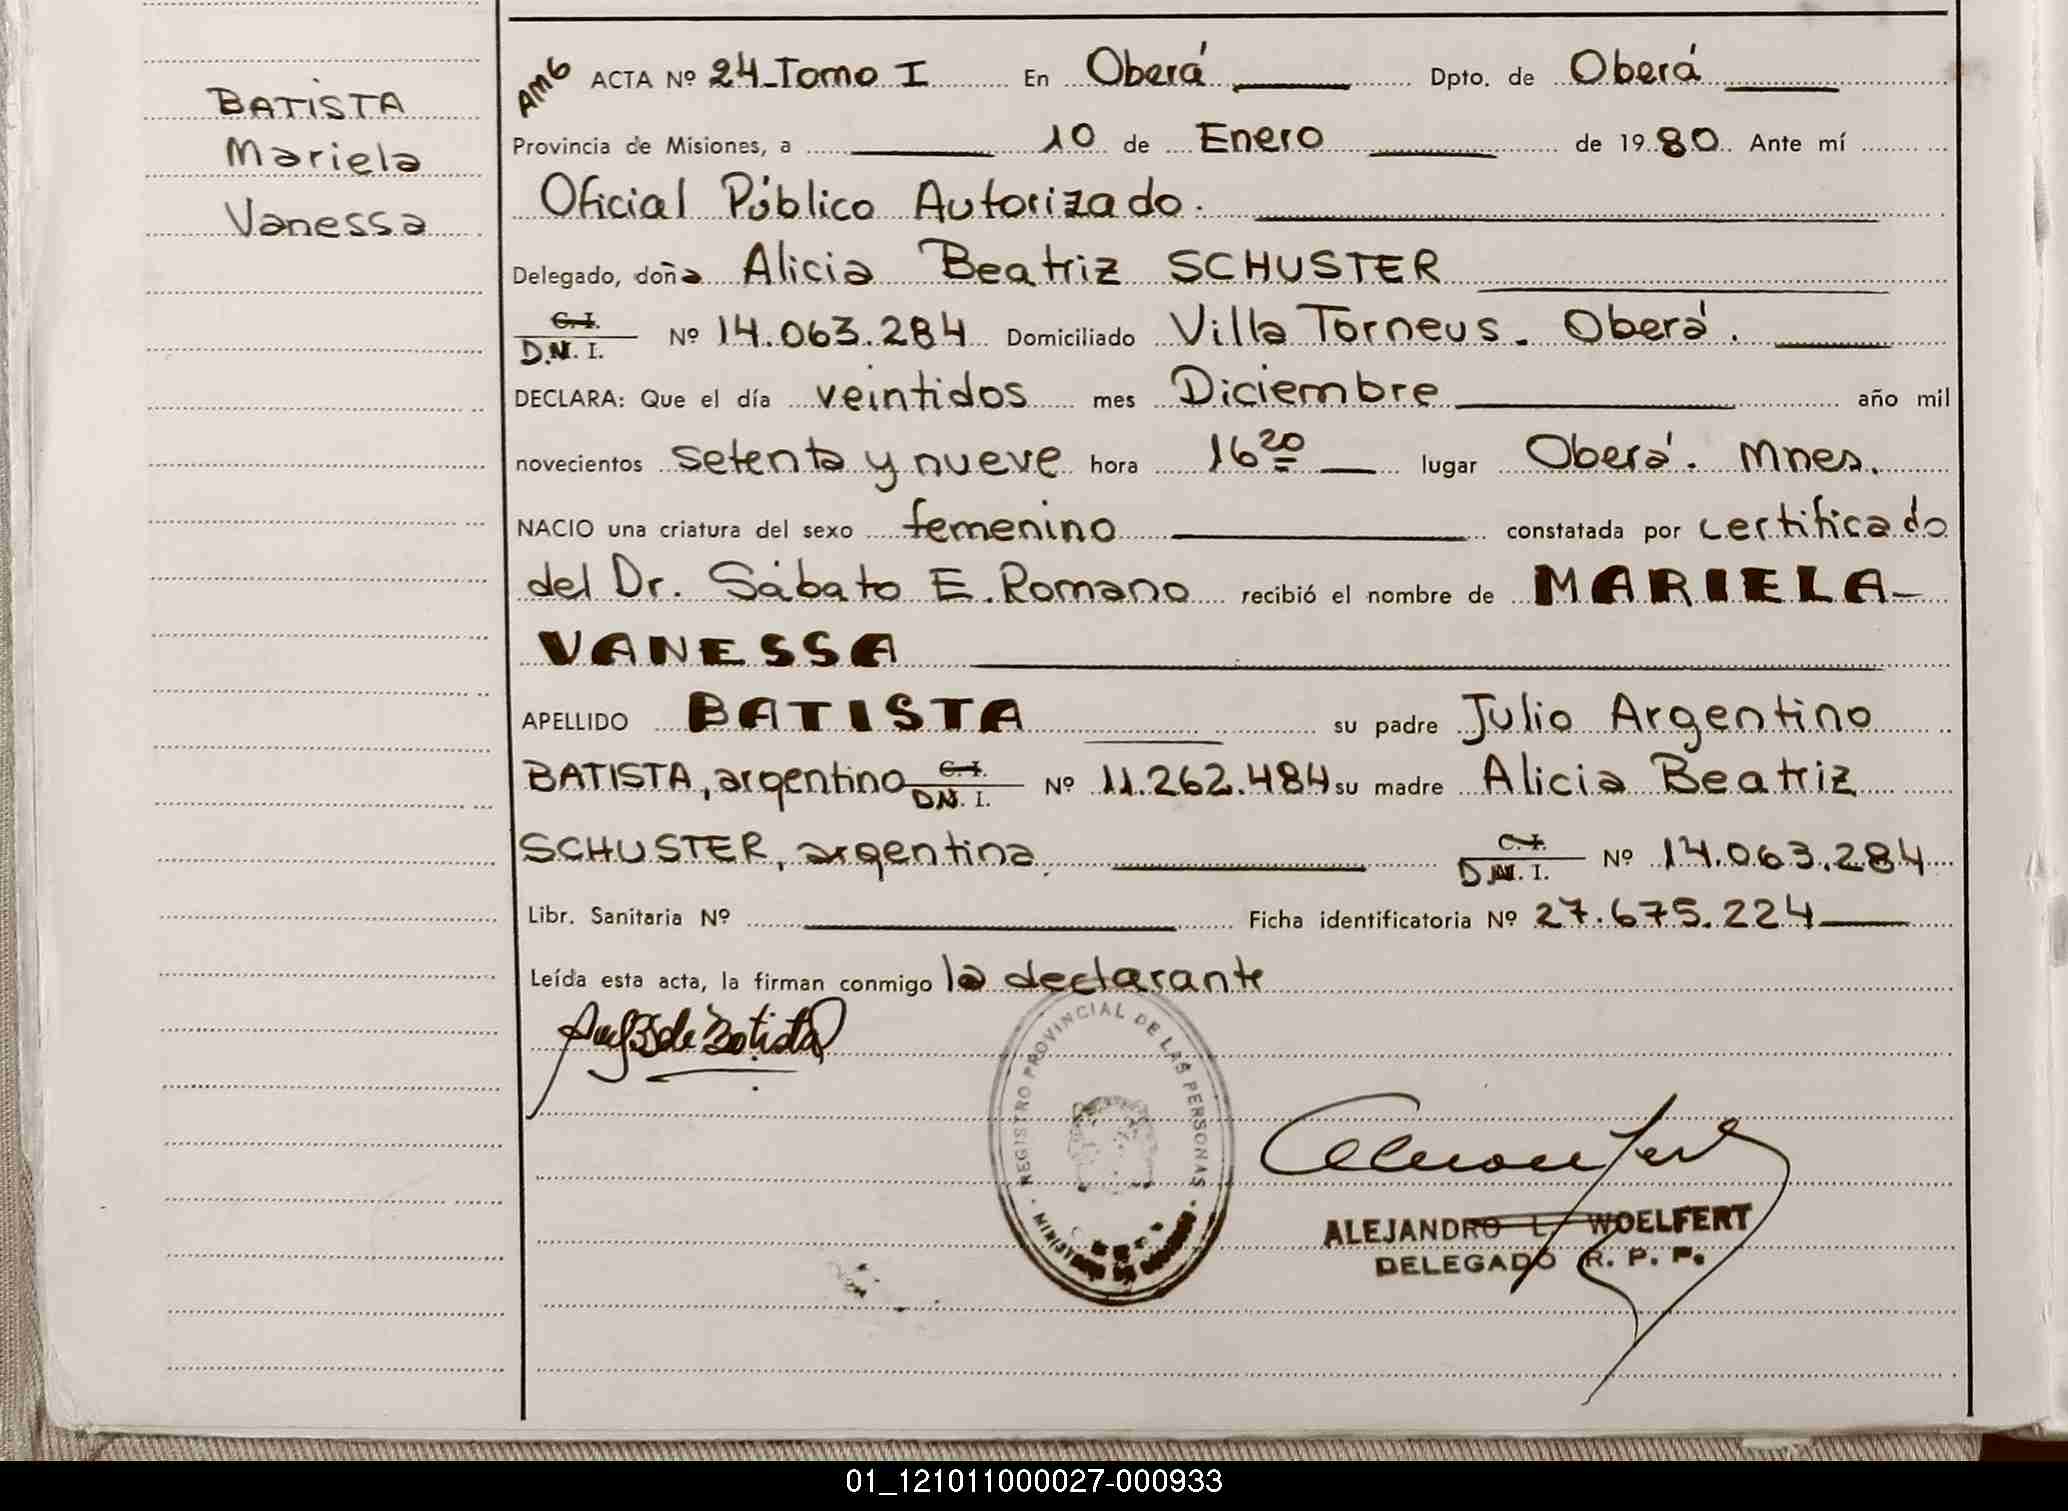 BATISTA
Mariela
Vanessa
AMG ACTA Nº 24_Tomo I En Oberá Dpto. de Oberá
Provincia de Misiones, a 10 de Enero de 1980. Ante mí
Oficial Público Autorizado.
Delegado, doña Alicia Beatriz SCHUSTER
C. I.
D.N. I. Nº 14.063.284 Domiciliado Villa Torneus. Oberá.
DECLARA: Que el día veintidos mes Diciembre año mil
novecientos setenta y nueve hora 16 20 lugar Oberá. Mnes.
NACIO una criatura del sexo femenino constatada por certificado
del Dr. Sábato E. Romano recibió el nombre de MARIELA
VANESSA
APELLIDO BATISTA su padre Julio Argentino
BATISTA, argentino C. I. D.N. I. Nº 11.262.484 su madre Alicia Beatriz
SCHUSTER, argentina. C. I. D.N. I. Nº 14.063.284
Libr. Sanitaria Nº Ficha identificatoria Nº 27.675.224
Leída esta acta, la firman conmigo la declarante
de Batista
REGISTRO PROVINCIAL DE LAS PERSONAS
MINISTERIO DE GOBIERNO
ALEJANDRO L. WOELFERT
DELEGADO R. P. P.
01_121011000027-000933